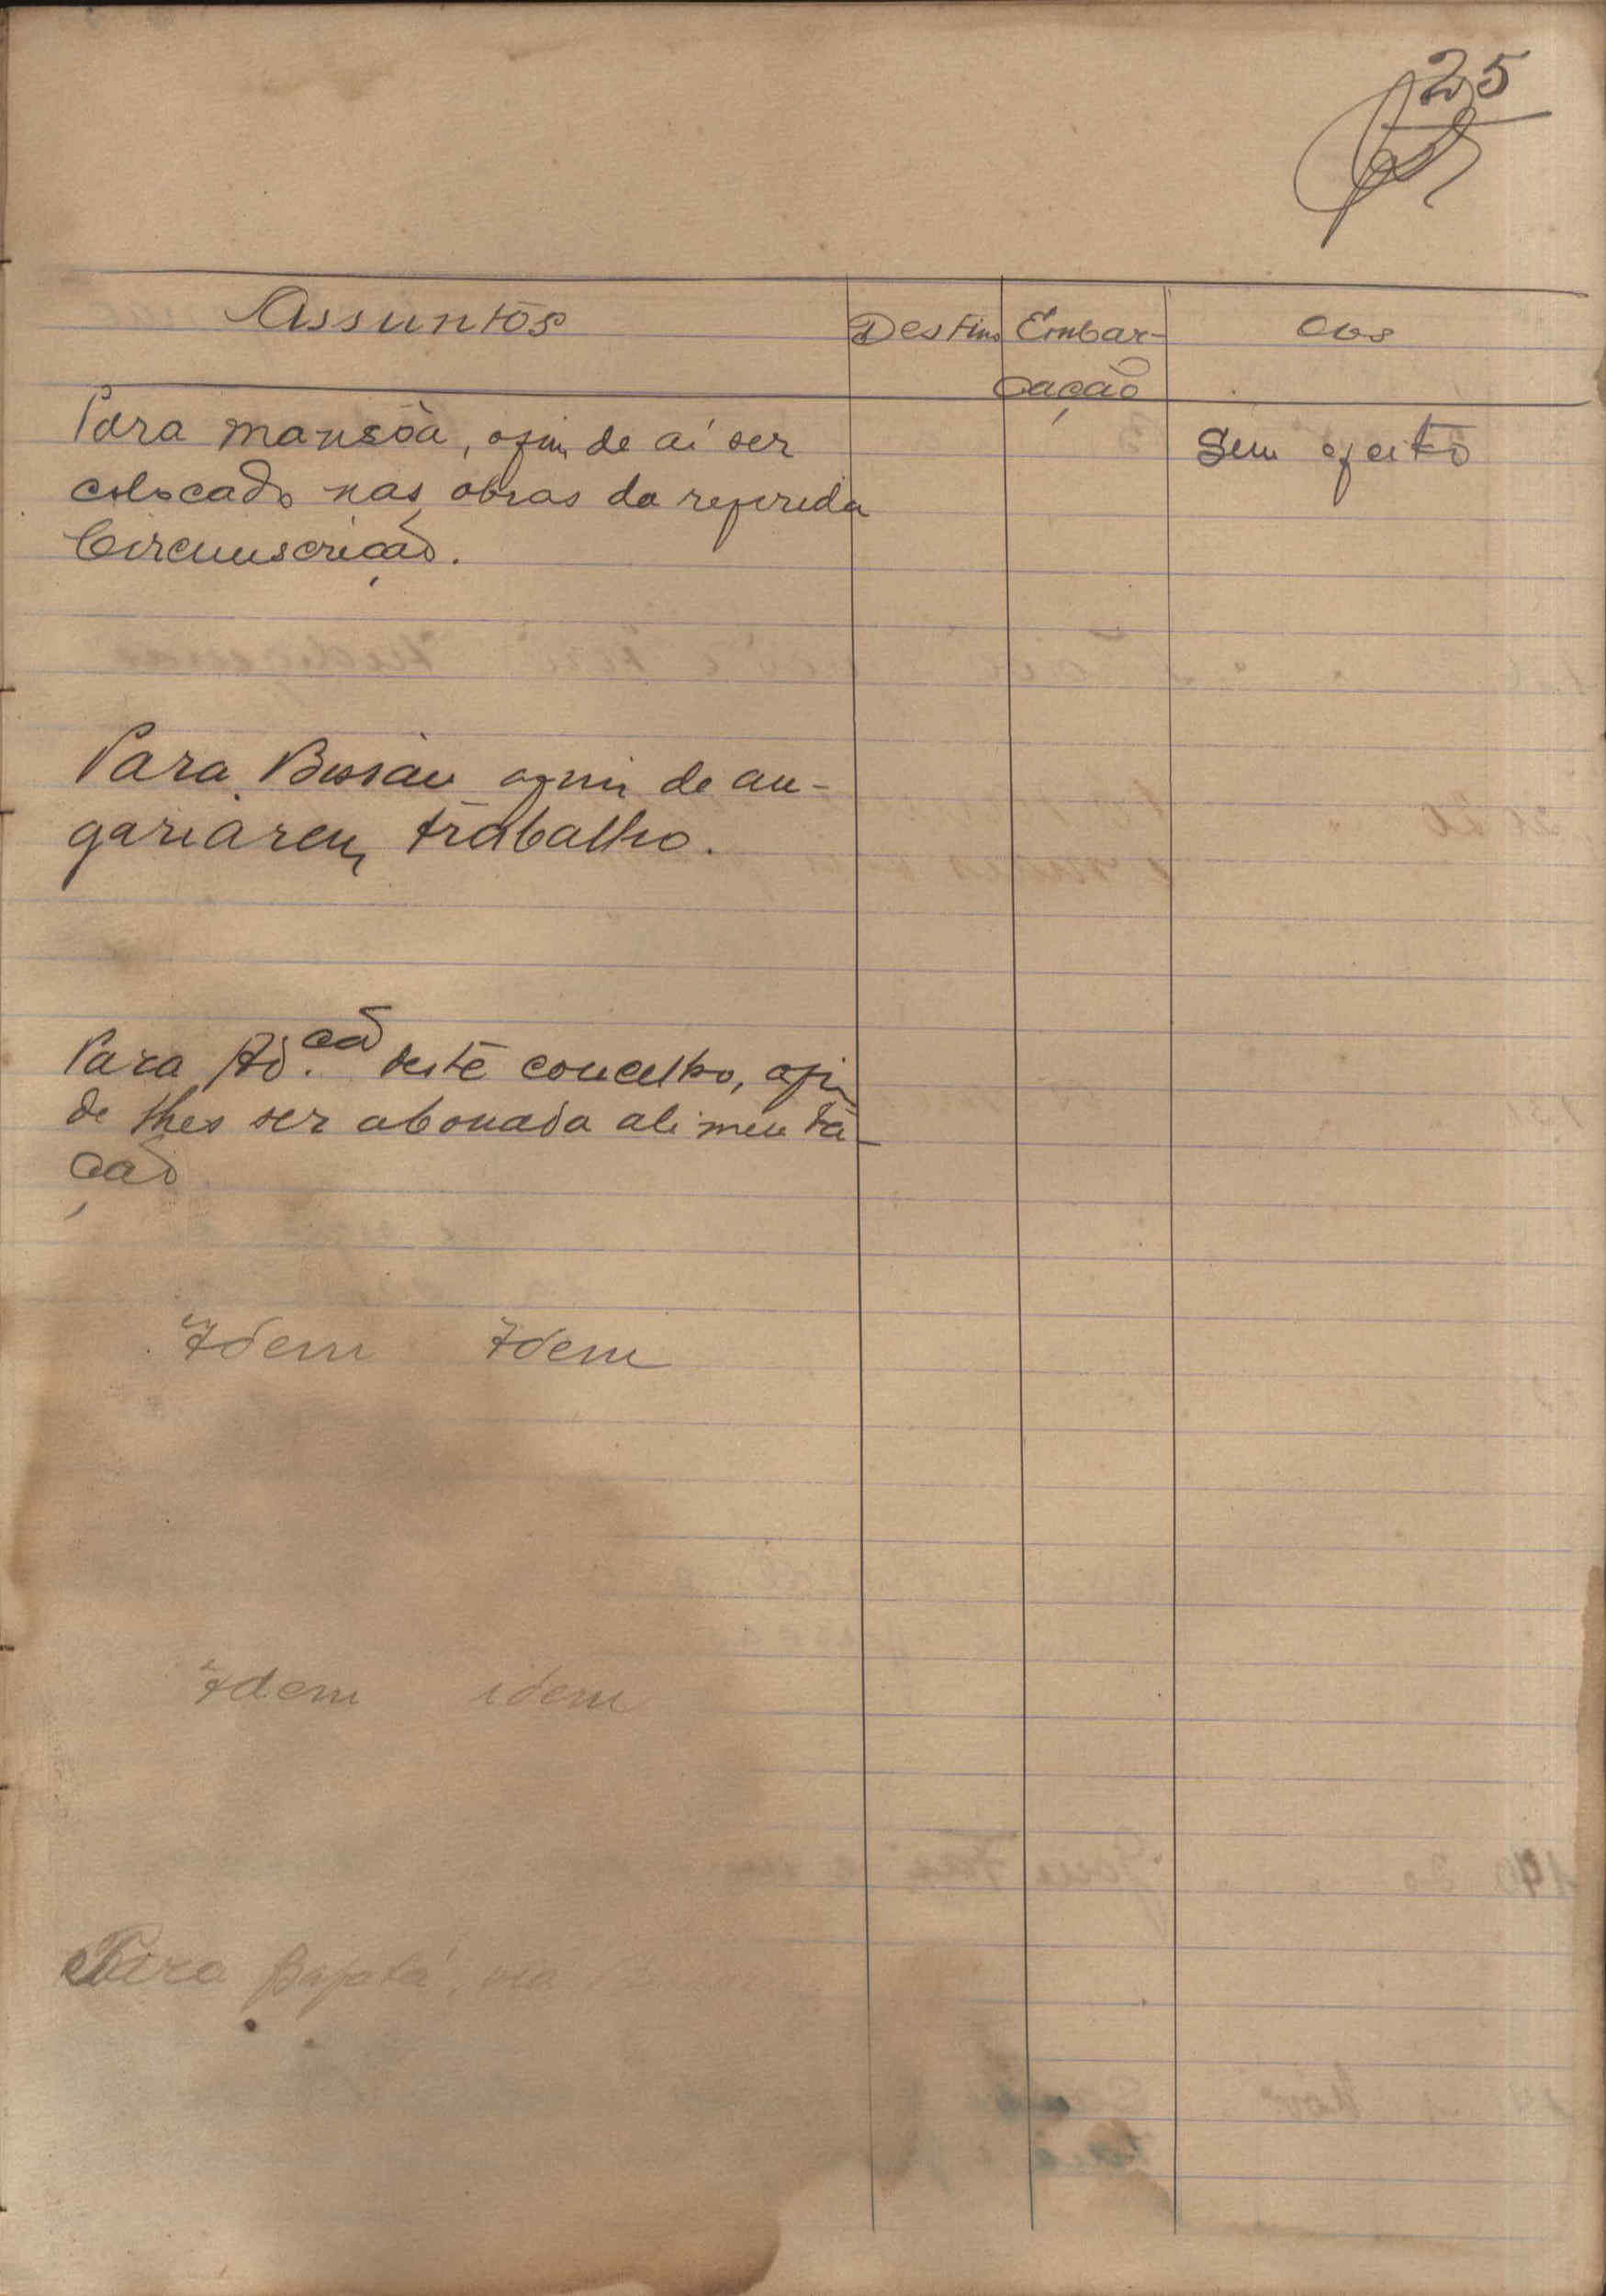 25
Assuntos Destino Embar-
cação Obs
Para Mansôa, afim de aí ser Sem efeito
colocado nas obras da referida
Circunscrição.
Para Bissau afim de an-
gariarem trabalho.
Para Ad.ção deste concelho, afim
de lhes ser abonada alimenta-
ção
Idem Idem
Idem idem
Para Bafatá, via